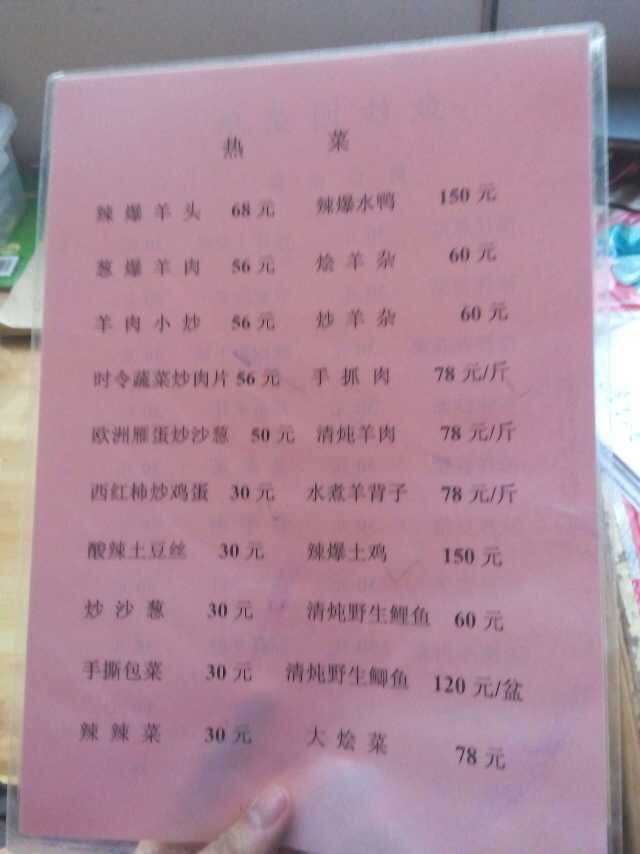 热 菜
辣爆羊头 68元 辣爆水鸭 150元
葱爆羊肉 56元 烩羊杂 60元
羊肉小炒 56元 炒羊杂 60元
时令蔬菜炒肉片 56元 手抓肉 78元/斤
欧洲雁蛋炒沙葱 50元 清炖羊肉 78元/斤
西红柿炒鸡蛋 30元 水煮羊背子 78元/斤
酸辣土豆丝 30元 辣爆土鸡 150元
炒沙葱 30元 清炖野生鲤鱼 60元
手撕包菜 30元 清炖野生鲫鱼 120元/盆
辣辣菜 30元 大烩菜 78元